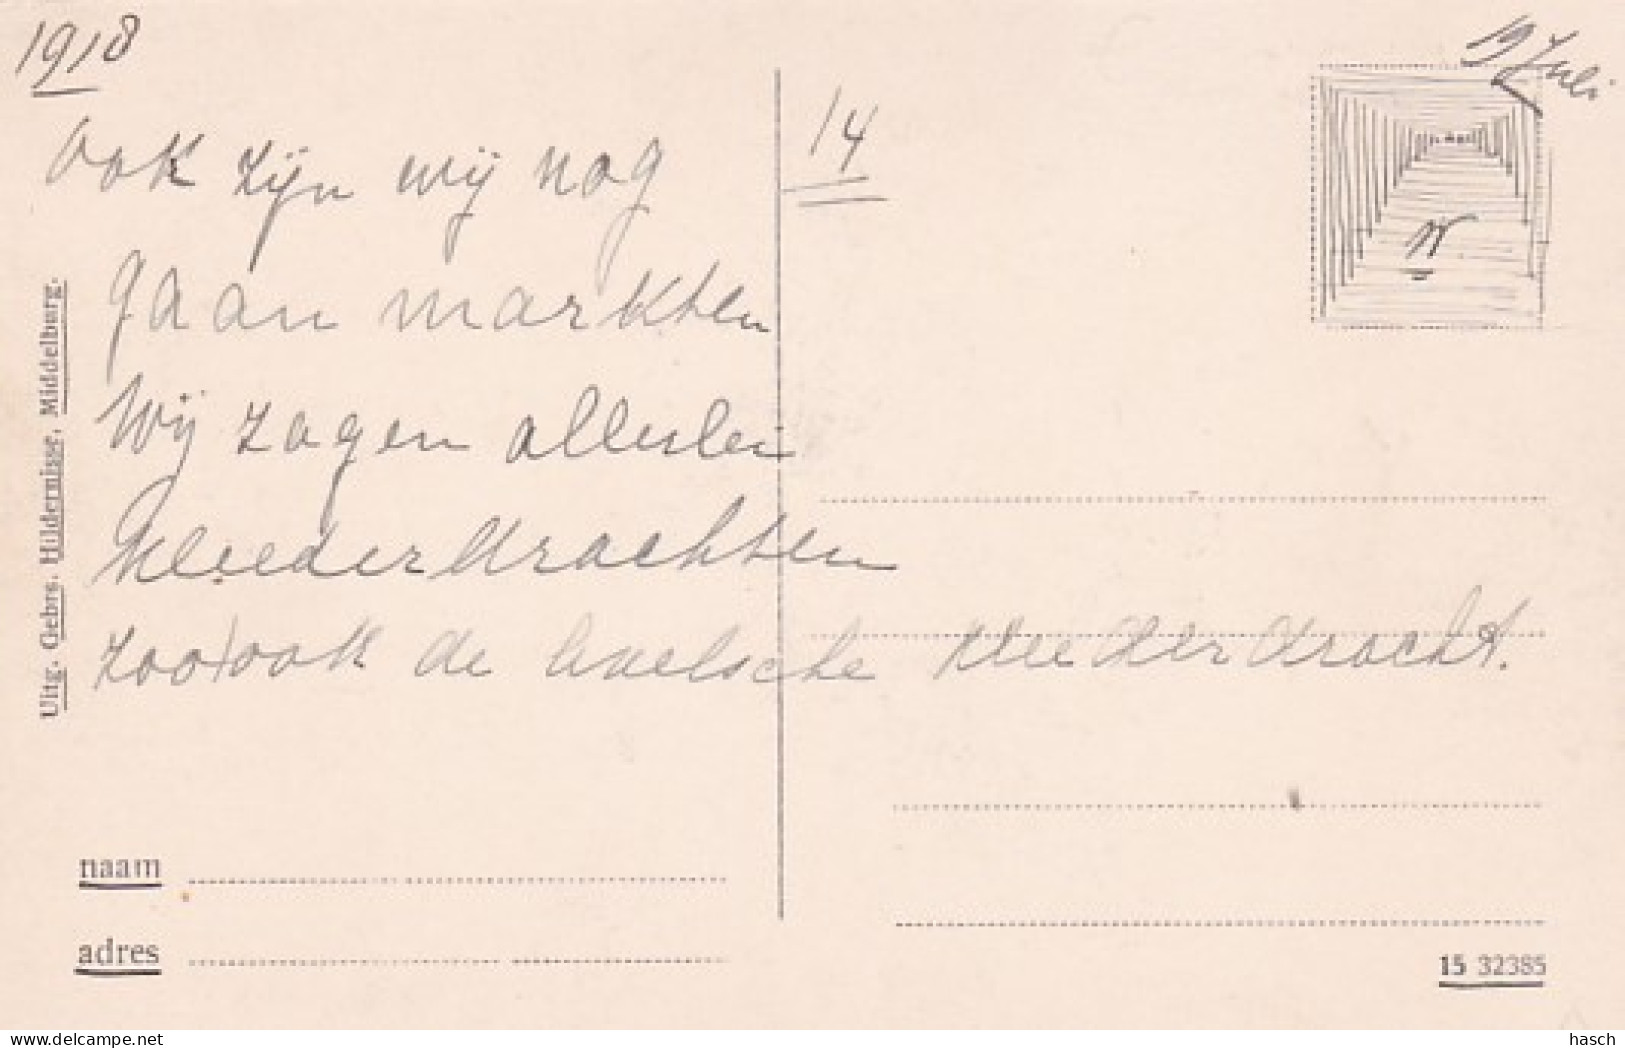 1918
9 Juli
14
Ook zijn wij nog
gaan markten
Wij zagen allerlei
kleederdrachten
zoo ook de kleederdracht.
Uitg. Gebrs. Hildernisse, Middelburg.
naam
adres
15 32385
© www.delcampe.net
hasch